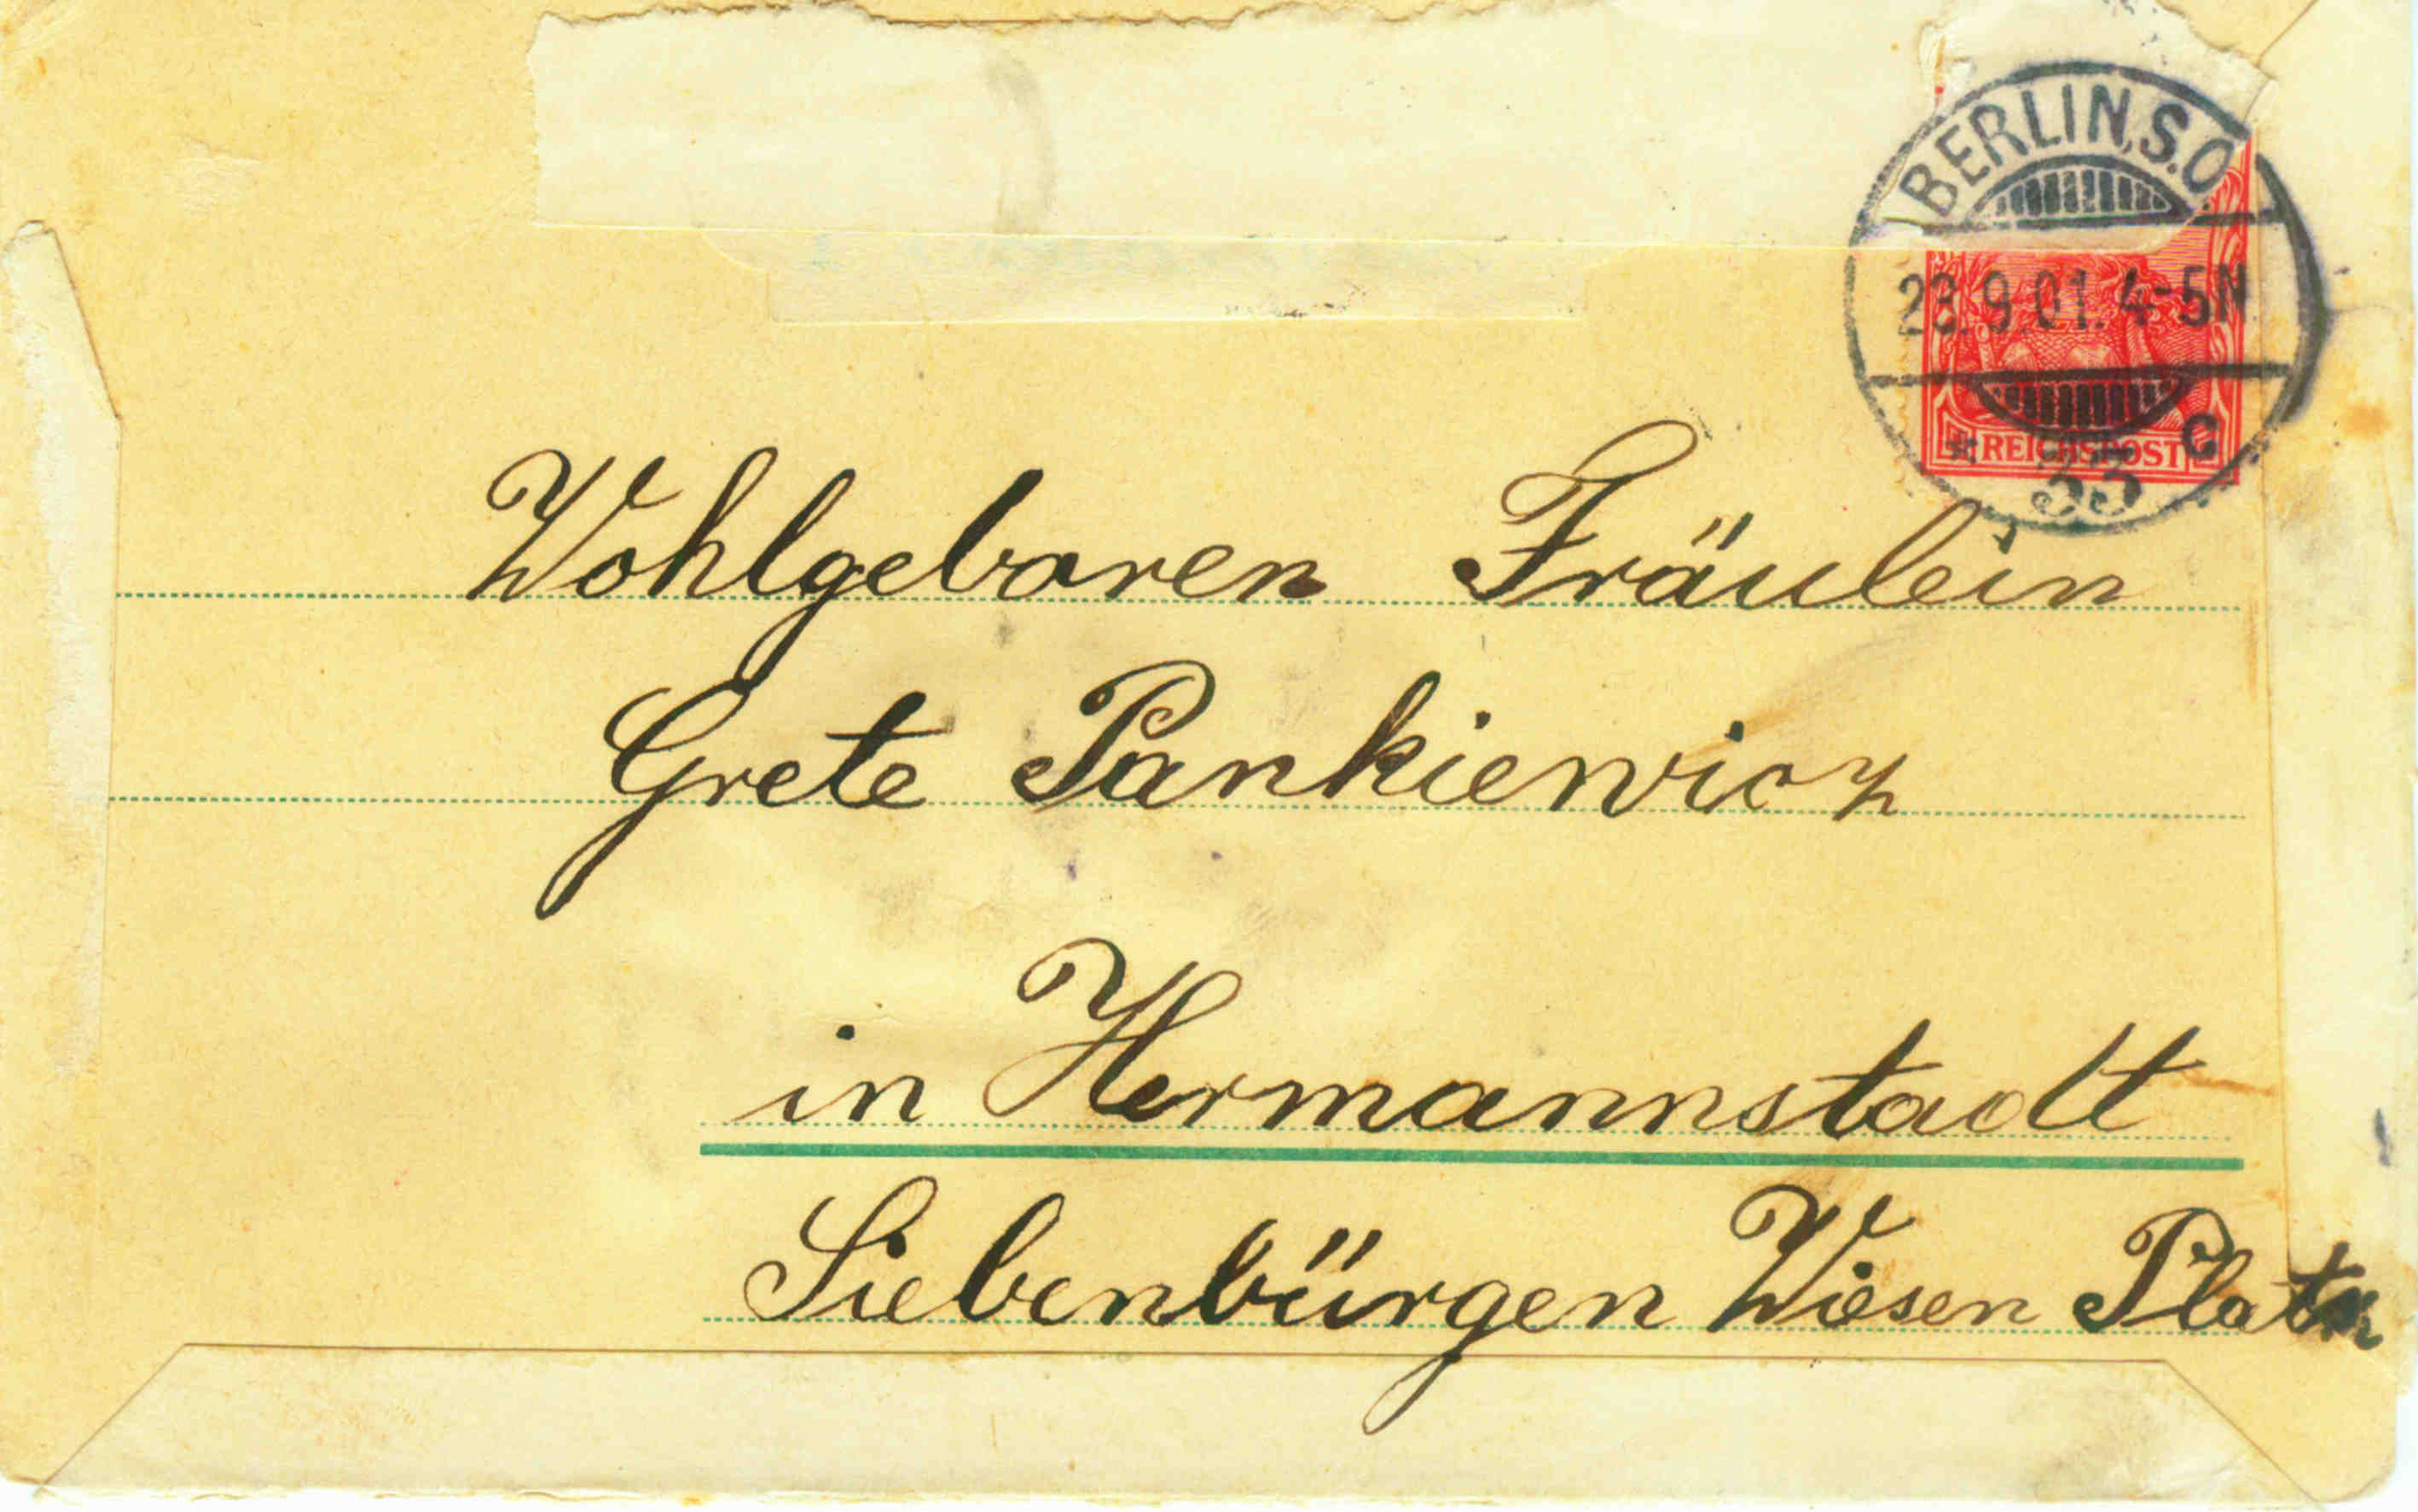 BERLIN, S.O.
23.9.01. 4-5N.
REICHSPOST
* 33 C
Wohlgeboren Fräulein
Grete Pankiewicz
in Hermannstadt
Siebenbürgen Wiesen Platz